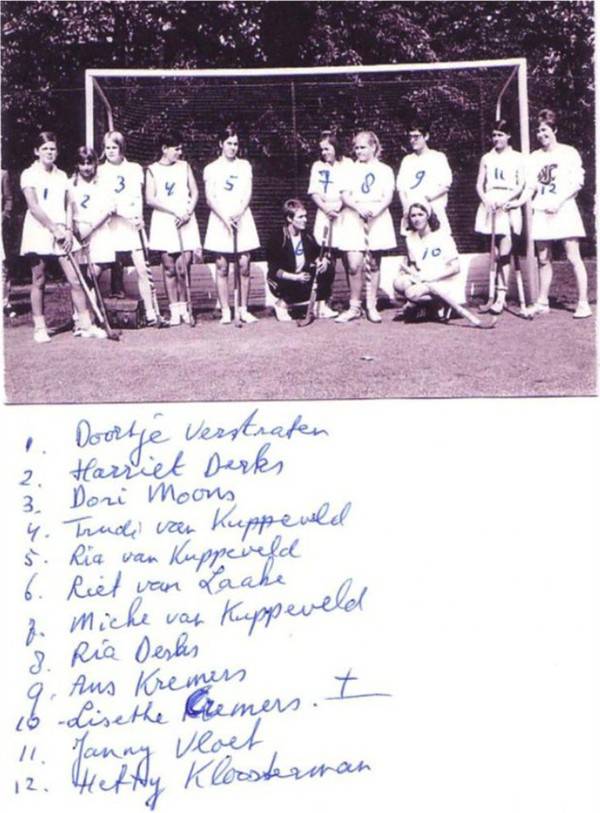 1 2 3 4 5 6 7 8 9 10 11 12
1. Doortje Verstraten
2. Harriet Derks
3. Dori Moons
4. Trudi van Kuppeveld
5. Ria van Kuppeveld
6. Riet van Laake
7. Mieke van Kuppeveld
8. Ria Derks
9. Ans Kremers
10 - Lisethe Kremers. †
11. Janny Vloet
12. Hetty Kloosterman